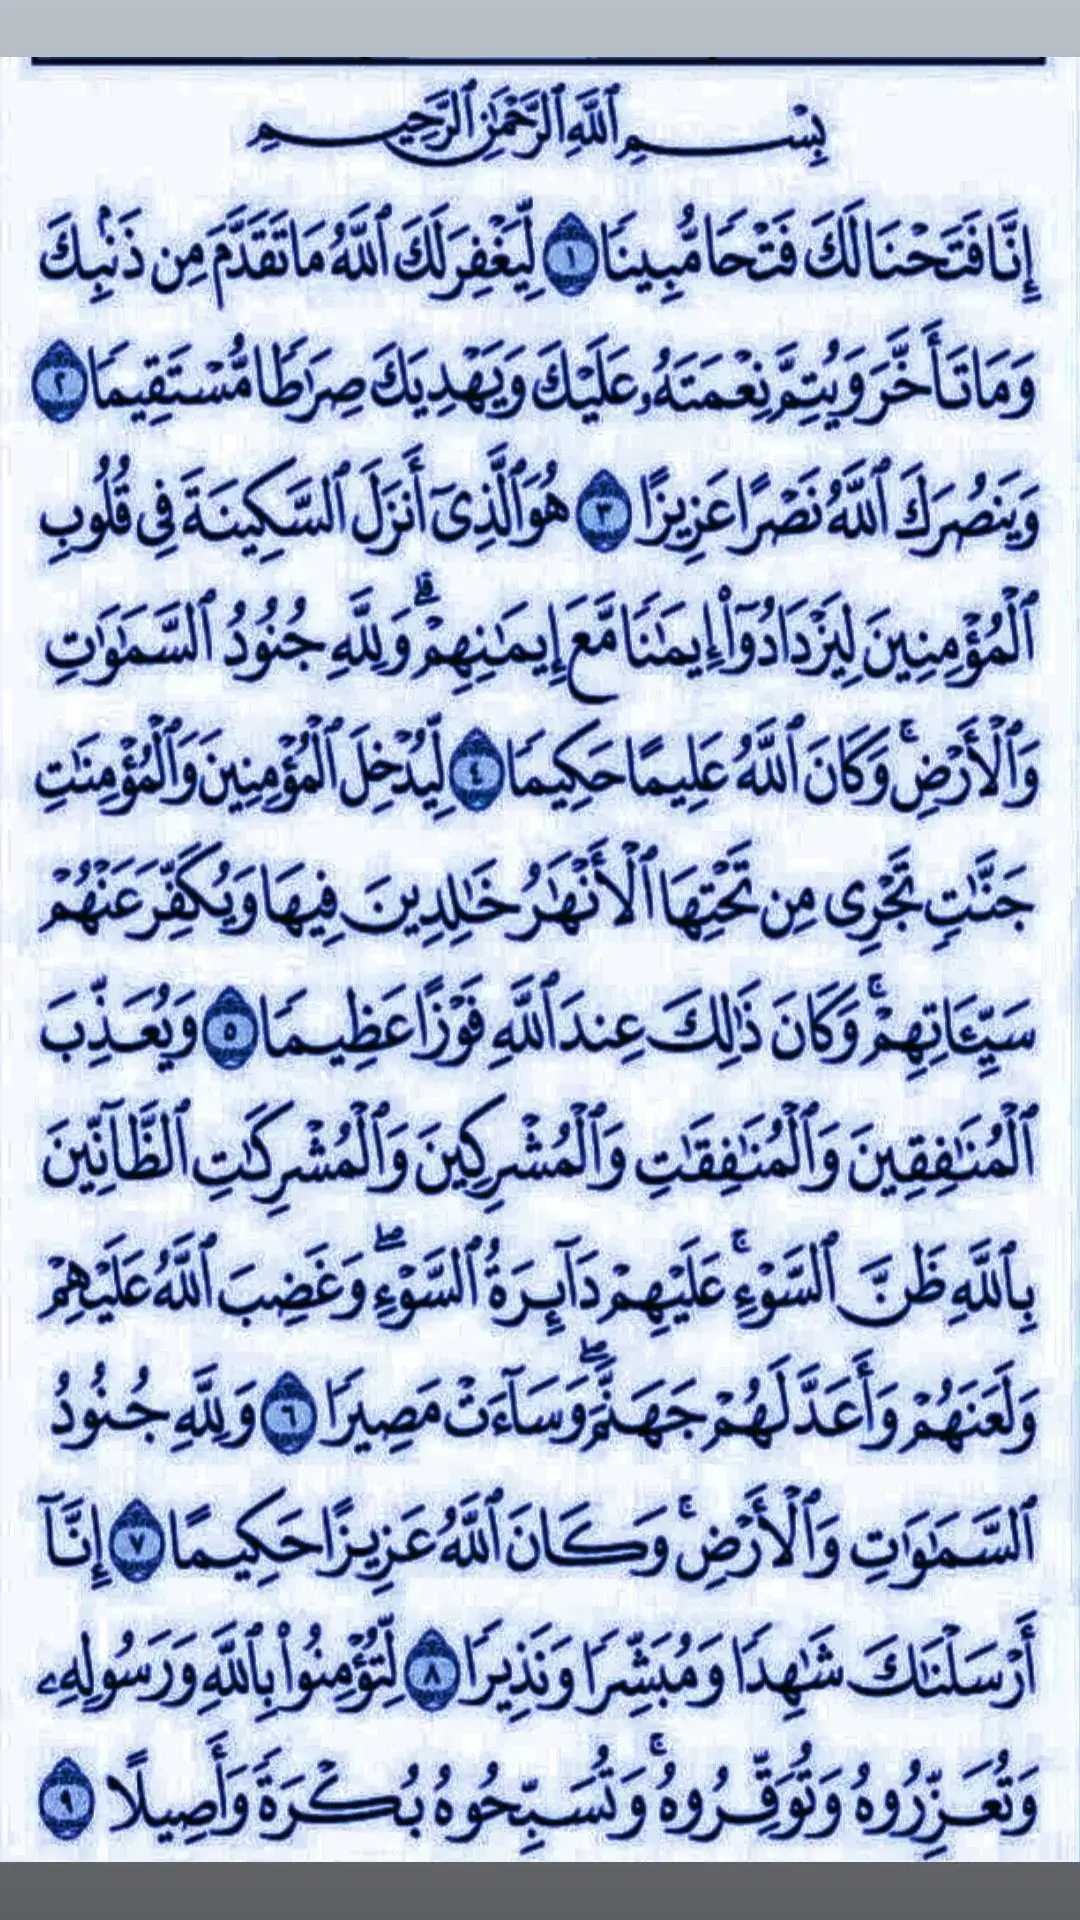 بِسْمِ ٱللَّهِ ٱلرَّحْمَٰنِ ٱلرَّحِيمِ
إِنَّا فَتَحْنَا لَكَ فَتْحًا مُّبِينًا ١ لِّيَغْفِرَ لَكَ ٱللَّهُ مَا تَقَدَّمَ مِن ذَنۢبِكَ
وَمَا تَأَخَّرَ وَيُتِمَّ نِعْمَتَهُۥ عَلَيْكَ وَيَهْدِيَكَ صِرَٰطًا مُّسْتَقِيمًا ٢
وَيَنصُرَكَ ٱللَّهُ نَصْرًا عَزِيزًا ٣ هُوَ ٱلَّذِىٓ أَنزَلَ ٱلسَّكِينَةَ فِى قُلُوبِ
ٱلْمُؤْمِنِينَ لِيَزْدَادُوٓا۟ إِيمَٰنًا مَّعَ إِيمَٰنِهِمْ ۗ وَلِلَّهِ جُنُودُ ٱلسَّمَٰوَٰتِ
وَٱلْأَرْضِ ۚ وَكَانَ ٱللَّهُ عَلِيمًا حَكِيمًا ٤ لِّيُدْخِلَ ٱلْمُؤْمِنِينَ وَٱلْمُؤْمِنَٰتِ
جَنَّٰتٍ تَجْرِى مِن تَحْتِهَا ٱلْأَنْهَٰرُ خَٰلِدِينَ فِيهَا وَيُكَفِّرَ عَنْهُمْ
سَيِّـَٔاتِهِمْ ۚ وَكَانَ ذَٰلِكَ عِندَ ٱللَّهِ فَوْزًا عَظِيمًا ٥ وَيُعَذِّبَ
ٱلْمُنَٰفِقِينَ وَٱلْمُنَٰفِقَٰتِ وَٱلْمُشْرِكِينَ وَٱلْمُشْرِكَٰتِ ٱلظَّآنِّينَ
بِٱللَّهِ ظَنَّ ٱلسَّوْءِ ۚ عَلَيْهِمْ دَآئِرَةُ ٱلسَّوْءِ ۖ وَغَضِبَ ٱللَّهُ عَلَيْهِمْ
وَلَعَنَهُمْ وَأَعَدَّ لَهُمْ جَهَنَّمَ ۖ وَسَآءَتْ مَصِيرًا ٦ وَلِلَّهِ جُنُودُ
ٱلسَّمَٰوَٰتِ وَٱلْأَرْضِ ۚ وَكَانَ ٱللَّهُ عَزِيزًا حَكِيمًا ٧ إِنَّآ
أَرْسَلْنَٰكَ شَٰهِدًا وَمُبَشِّرًا وَنَذِيرًا ٨ لِّتُؤْمِنُوا۟ بِٱللَّهِ وَرَسُولِهِۦ
وَتُعَزِّرُوهُ وَتُوَقِّرُوهُ ۚ وَتُسَبِّحُوهُ بُكْرَةً وَأَصِيلًا ٩